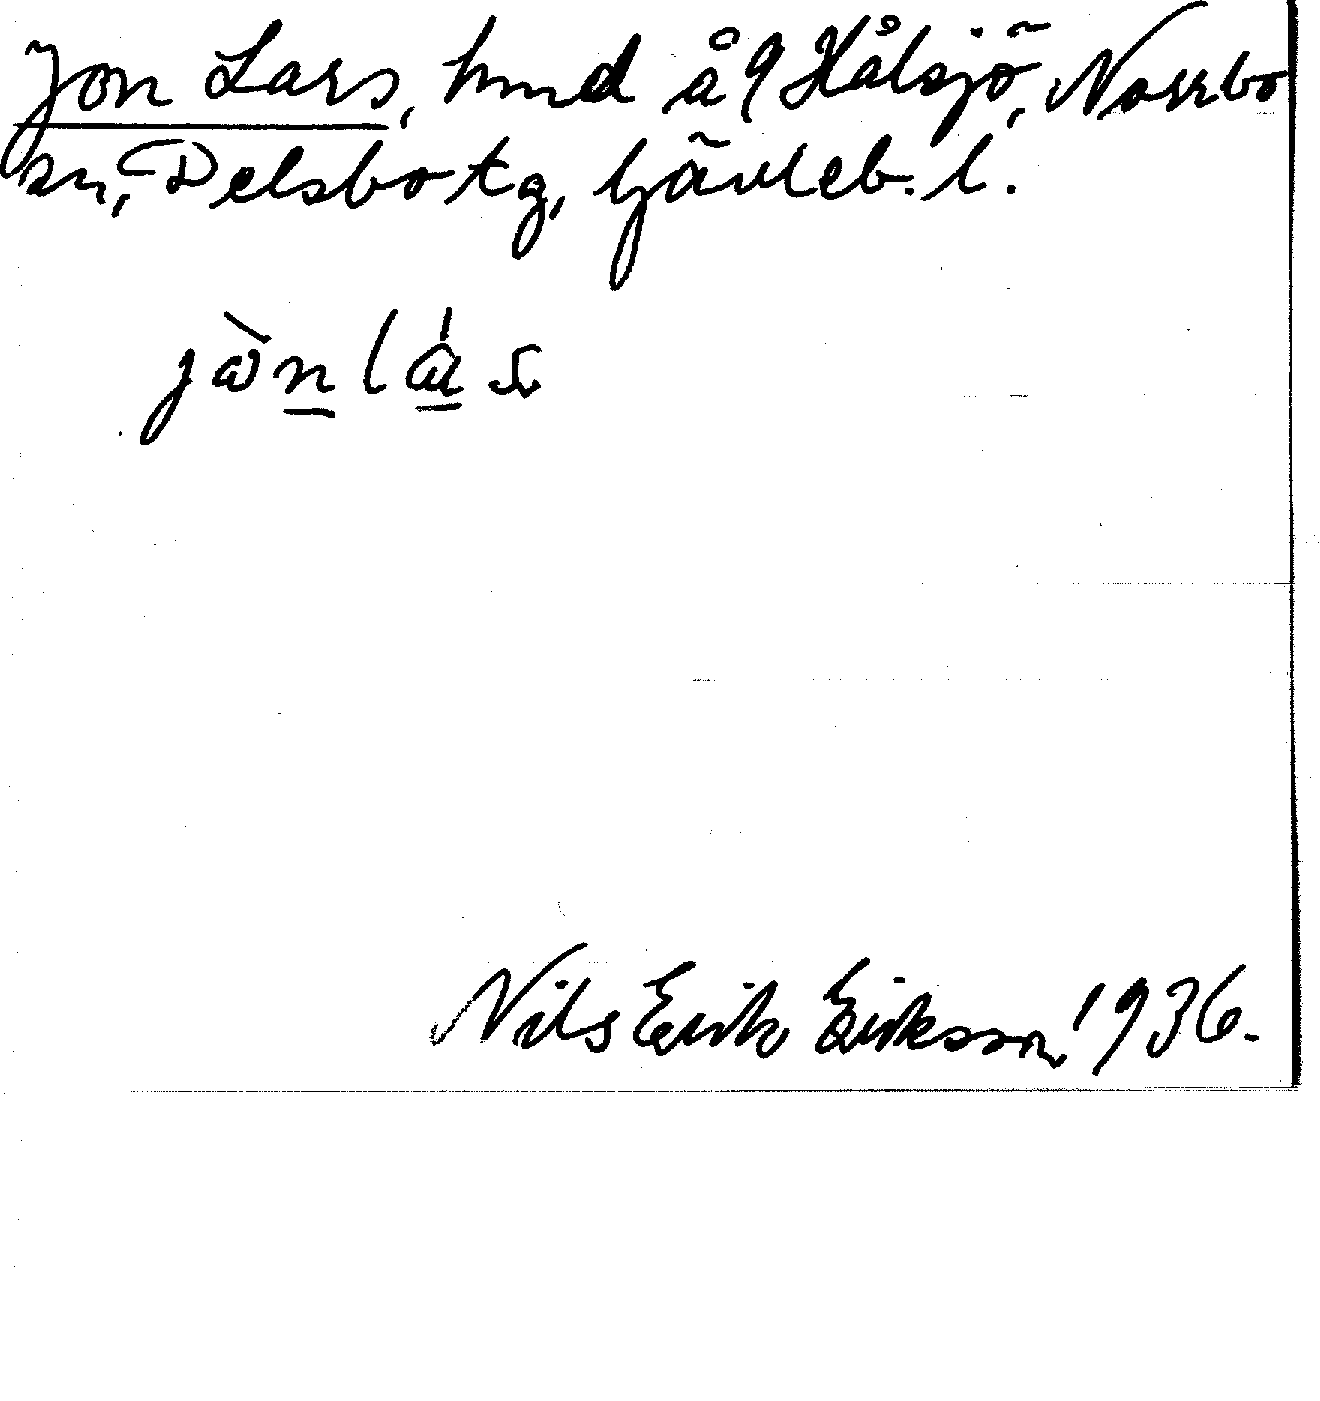 Jon Lars, hmd å 9 Hålsjö, Norrbo
sn, Delsbo tg, Gävleb. l.
jòn lás
Nils Erik Eriksson 1936.